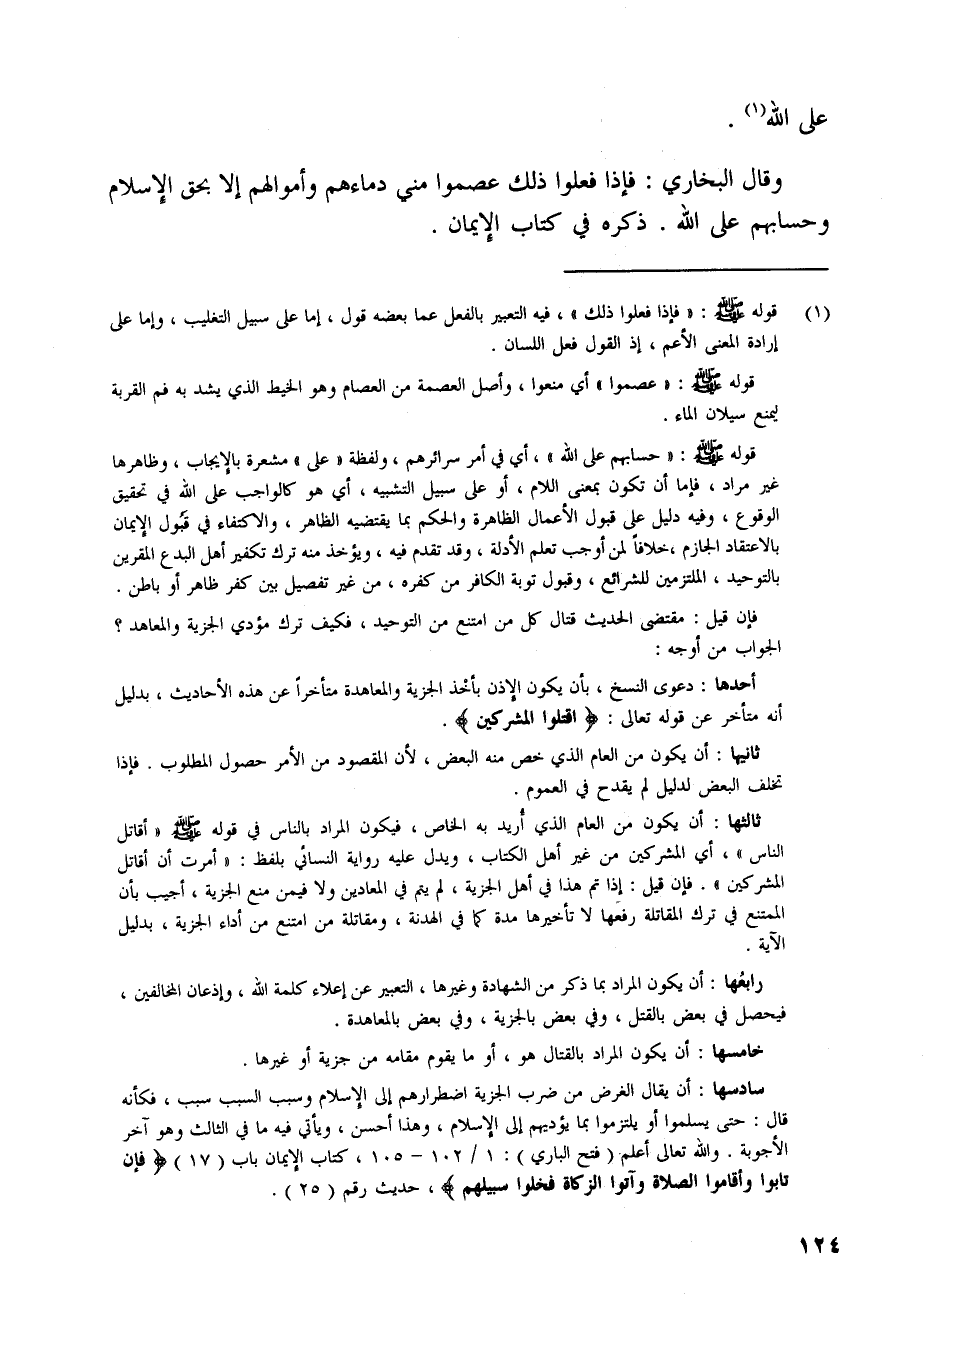 على الله(١) .
وقال البخاري : فإذا فعلوا ذلك عصموا مني دماءهم وأموالهم إلا بحق الإسلام
وحسابهم على الله . ذكره في كتاب الإيمان .
(١) قوله ﷺ : « فإذا فعلوا ذلك » ، فيه التعبير بالفعل عما بعضه قول ، إما على سبيل التغليب ، وإما على
إرادة المعنى الأعم ، إذ القول فعل اللسان .
قوله ﷺ : « عصموا » أي منعوا ، وأصل العصمة من العصام وهو الخيط الذي يشد به فم القربة
ليمنع سيلان الماء .
قوله ﷺ : « حسابهم على الله » ، أي في أمر سرائرهم ، ولفظة « على » مشعرة بالإيجاب ، وظاهرها
غير مراد ، فإما أن تكون بمعنى اللام ، أو على سبيل التشبيه ، أي هو كالواجب على الله في تحقيق
الوقوع ، وفيه دليل على قبول الأعمال الظاهرة والحكم بما يقتضيه الظاهر ، والاكتفاء في قَبُول الإيمان
بالاعتقاد الجازم ،خلافاً لمن أوجب تعلم الأدلة ، وقد تقدم فيه ، ويؤخذ منه ترك تكفير أهل البدع المقرين
بالتوحيد ، الملتزمين للشرائع ، وقبول توبة الكافر من كفره ، من غير تفصيل بين كفر ظاهر أو باطن .
فإن قيل : مقتضى الحديث قتال كل من امتنع من التوحيد ، فكيف ترك مؤدي الجزية والمعاهد ؟
الجواب من أوجه :
أحدها : دعوى النسخ ، بأن يكون الإذن بأخذ الجزية والمعاهدة متأخراً عن هذه الأحاديث ، بدليل
أنه متأخر عن قوله تعالى : ﴿ اقتلوا المشركين ﴾ .
ثانيها : أن يكون من العام الذي خص منه البعض ، لأن المقصود من الأمر حصول المطلوب . فإذا
تخلف البعض لدليل لم يقدح في العموم .
ثالثها : أن يكون من العام الذي أُريد به الخاص ، فيكون المراد بالناس في قوله ﷺ « أقاتل
الناس » ، أي المشركين من غير أهل الكتاب ، ويدل عليه رواية النسائي بلفظ : « أمرت أن أقاتل
المشركين » . فإن قيل : إذا تم هذا في أهل الجزية ، لم يتم في المعادين ولا فيمن منع الجزية ، أجيب بأن
الممتنع في ترك المقاتلة رفعها لا تأخيرها مدة كما في الهدنة ، ومقاتلة من امتنع من أداء الجزية ، بدليل
الآية .
رابعُها : أن يكون المراد بما ذكر من الشهادة وغيرها ، التعبير عن إعلاء كلمة الله ، وإذعان المخالفين ،
فيحصل في بعض بالقتل ، وفي بعض بالجزية ، وفي بعض بالمعاهدة .
خامسها : أن يكون المراد بالقتال هو ، أو ما يقوم مقامه من جزية أو غيرها .
سادسها : أن يقال الغرض من ضرب الجزية اضطرارهم إلى الإسلام وسبب السبب سبب ، فكأنه
قال : حتى يسلموا أو يلتزموا بما يؤديهم إلى الإسلام ، وهذا أحسن ، ويأتي فيه ما في الثالث وهو آخر
الأجوبة . والله تعالى أعلم ( فتح الباري ) : ١ / ١٠٢ – ١٠٥ ، كتاب الإيمان باب ( ١٧ ) ﴿ فإن
تابوا وأقاموا الصلاة وآتوا الزكاة فخلوا سبيلهم ﴾ ، حديث رقم ( ٢٥ ) .
١٢٤